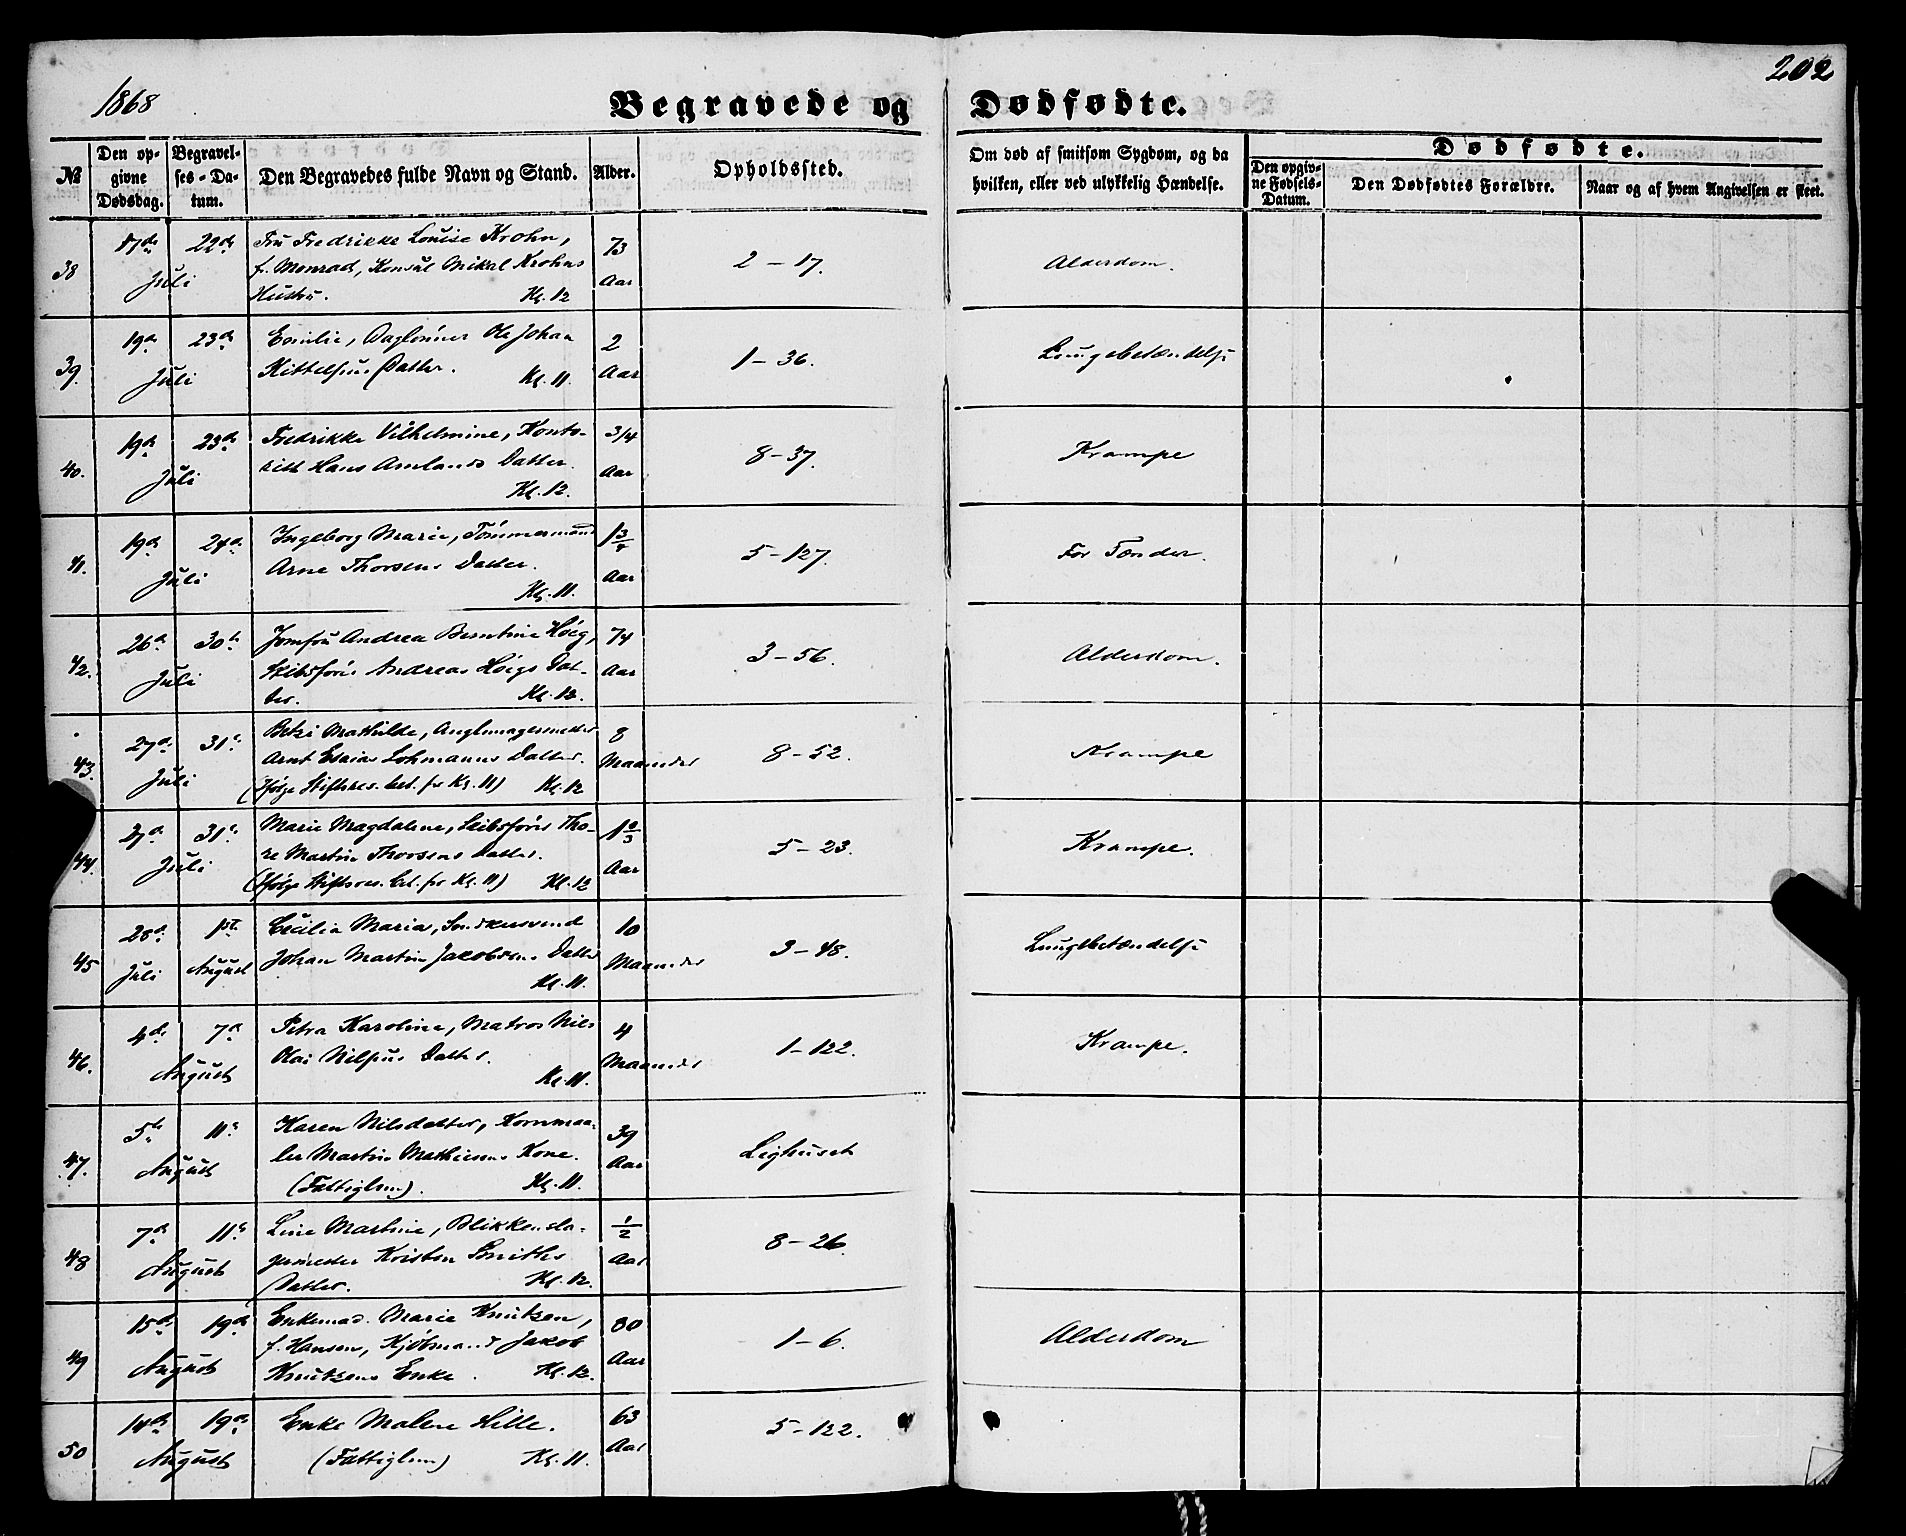 1868
202
Begravede og Dødfødte.
№
Den opgivne Dødsdag.
Begravelses-Datum.
Den Begravedes fulde Navn og Stand.
Alder.
Opholdssted.
Om død af smitsom Sygdom, og da hvilken, eller ved ulykkelig Hændelse.
Dødfødte.
Den opgivne Fødsels-Datum.
Den Dødfødtes Forældre.
Naar og af hvem Angivelsen er skeet.
38 17de 22de Juli
Fru Fredrikke Louise Krohn,
f. Monrad, Konsul Mikal Krohns
Hustru. Kl. 12
73 Aar
2 – 17.
Alderdom.
39. 19de 23de Juli
Emilie, Daglönner Ole Johan
Kittelsens Datter. Kl. 11.
2 Aar
1 – 36.
Lungebetændelse
40. 19de 23de Juli
Fredrikke Vilhelmine, Konto-
rist Hans Amlands Datter.
Kl. 12.
3/4 Aar
8 – 37.
Krampe
41. 19de 24de Juli
Ingeborg Marie, Tömmermand
Arne Thorsens Datter.
Kl. 11.
1 3/4 Aar
5 – 127.
For Tænder.
42. 26de 30te Juli
Jomfru Andrea Berntine Höeg,
Skibsförer Andreas Höegs Dat-
ter. Kl. 12.
74 Aar
3 – 56.
Alderdom.
43. 27de 31te Juli
Betzi Mathilde,
Arnt Esaias Lohmanns Datter.
(Ifølge Kl. 11) Kl. 12
8 Maaneder
8 – 52.
Krampe
44. 27de 31te Juli
Marie Magdalene, Skibsförer Tho-
re Martin Thorsens Datter.
(Ifølge Kl. 11) Kl. 12
1 2/3 Aar
5 – 23.
Krampe.
45 28de Juli 1ste August
Cecilia Maria, Snedkersvend
Johan Martin Jacobsens Datter
Kl. 11.
10 Maaneder
3 – 48.
Lungebetændelse
46. 4de 7de August
Petra Karoline, Matros Nils
Olai Nilsens Datter.
Kl. 11.
4 Maaneder
1 – 122.
Krampe.
47. 5te 11te August
Karen Nilsdatter, Kornmaa-
ler Martin Mathiesens Kone.
(Fattiglem). Kl. 11.
39 Aar
Lighuset
48 7de 11te August
Line Martine, Blikkensla-
germester Kristen Smiths
Datter. Kl. 12.
1/2 Aar
8 – 26.
49 15de 19de August
Enkemad. Marie Knutzen,
f. Hansen, Kjöbmand Jakob
Knutzens Enke. Kl. 12.
80 Aar
1 – 6.
Alderdom
50 14de 19de August
Enke Malene Hille.
(Fattiglem) Kl. 11.
63 Aar
5 – 122.